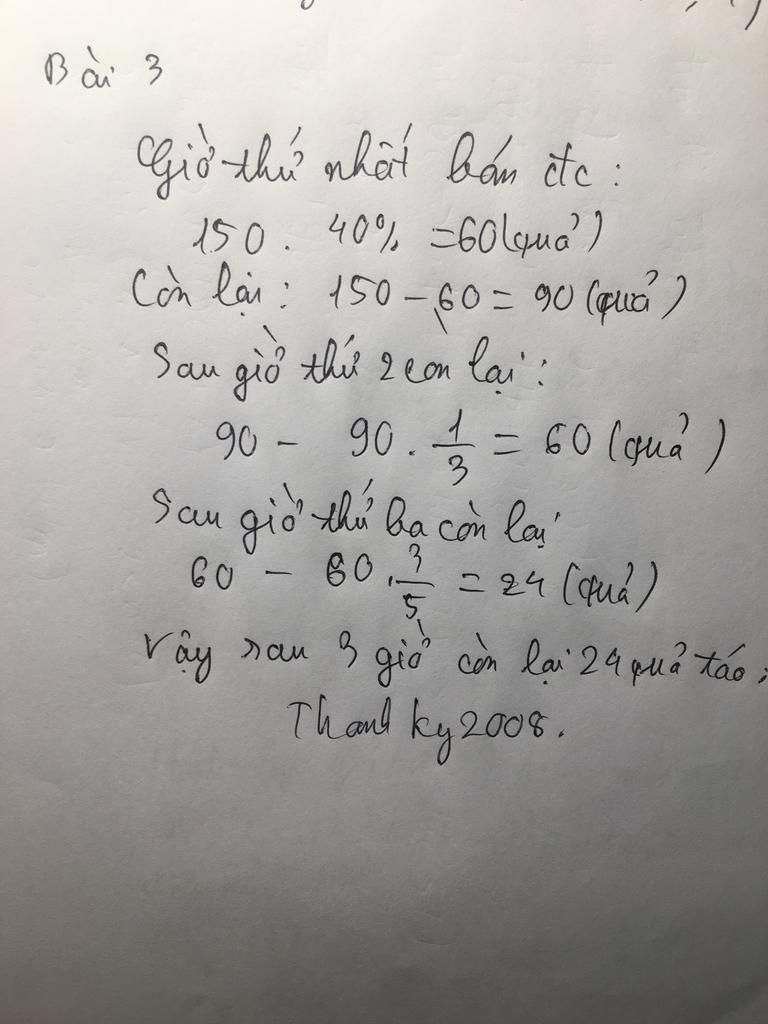 Bài 3
Giờ thứ nhất bán đtc :
150 . 40% = 60 (quả)
Còn lại : 150 - 60 = 90 (quả)
Sau giờ thứ 2 còn lại :
90 - 90 . 1/3 = 60 (quả)
Sau giờ thứ ba còn lại
60 - 60 . 3/5 = 24 (quả)
Vậy sau 3 giờ còn lại 24 quả táo ;
Thanh ky 2008 .